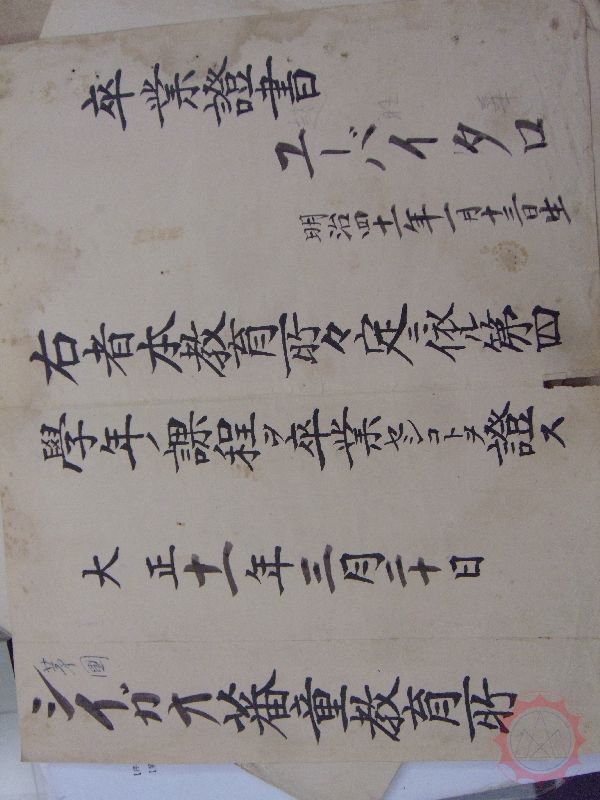 卒業證書
ユーバイタロ
明治四十一年一月十三日生
右者本教育所々定ニ依リ第四
學年ノ課程ヲ卒業セシコトヲ證ス
大正十一年三月二十日
シイガオ蕃童教育所